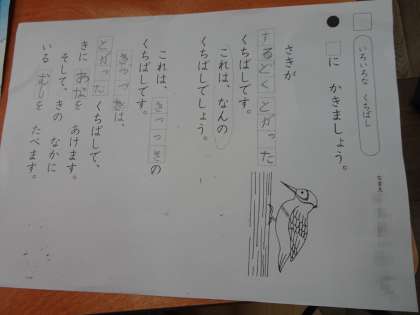 いろいろな くちばし
□に かきましょう。
さきが
するどく とがった
くちばしです。
これは、なんの
くちばしでしょう。
これは、きつつきの
くちばしです。
きつつきは、
とがった くちばしで、
きに あなを あけます。
そして、きの なかに
いる むしを たべます。
なまえ